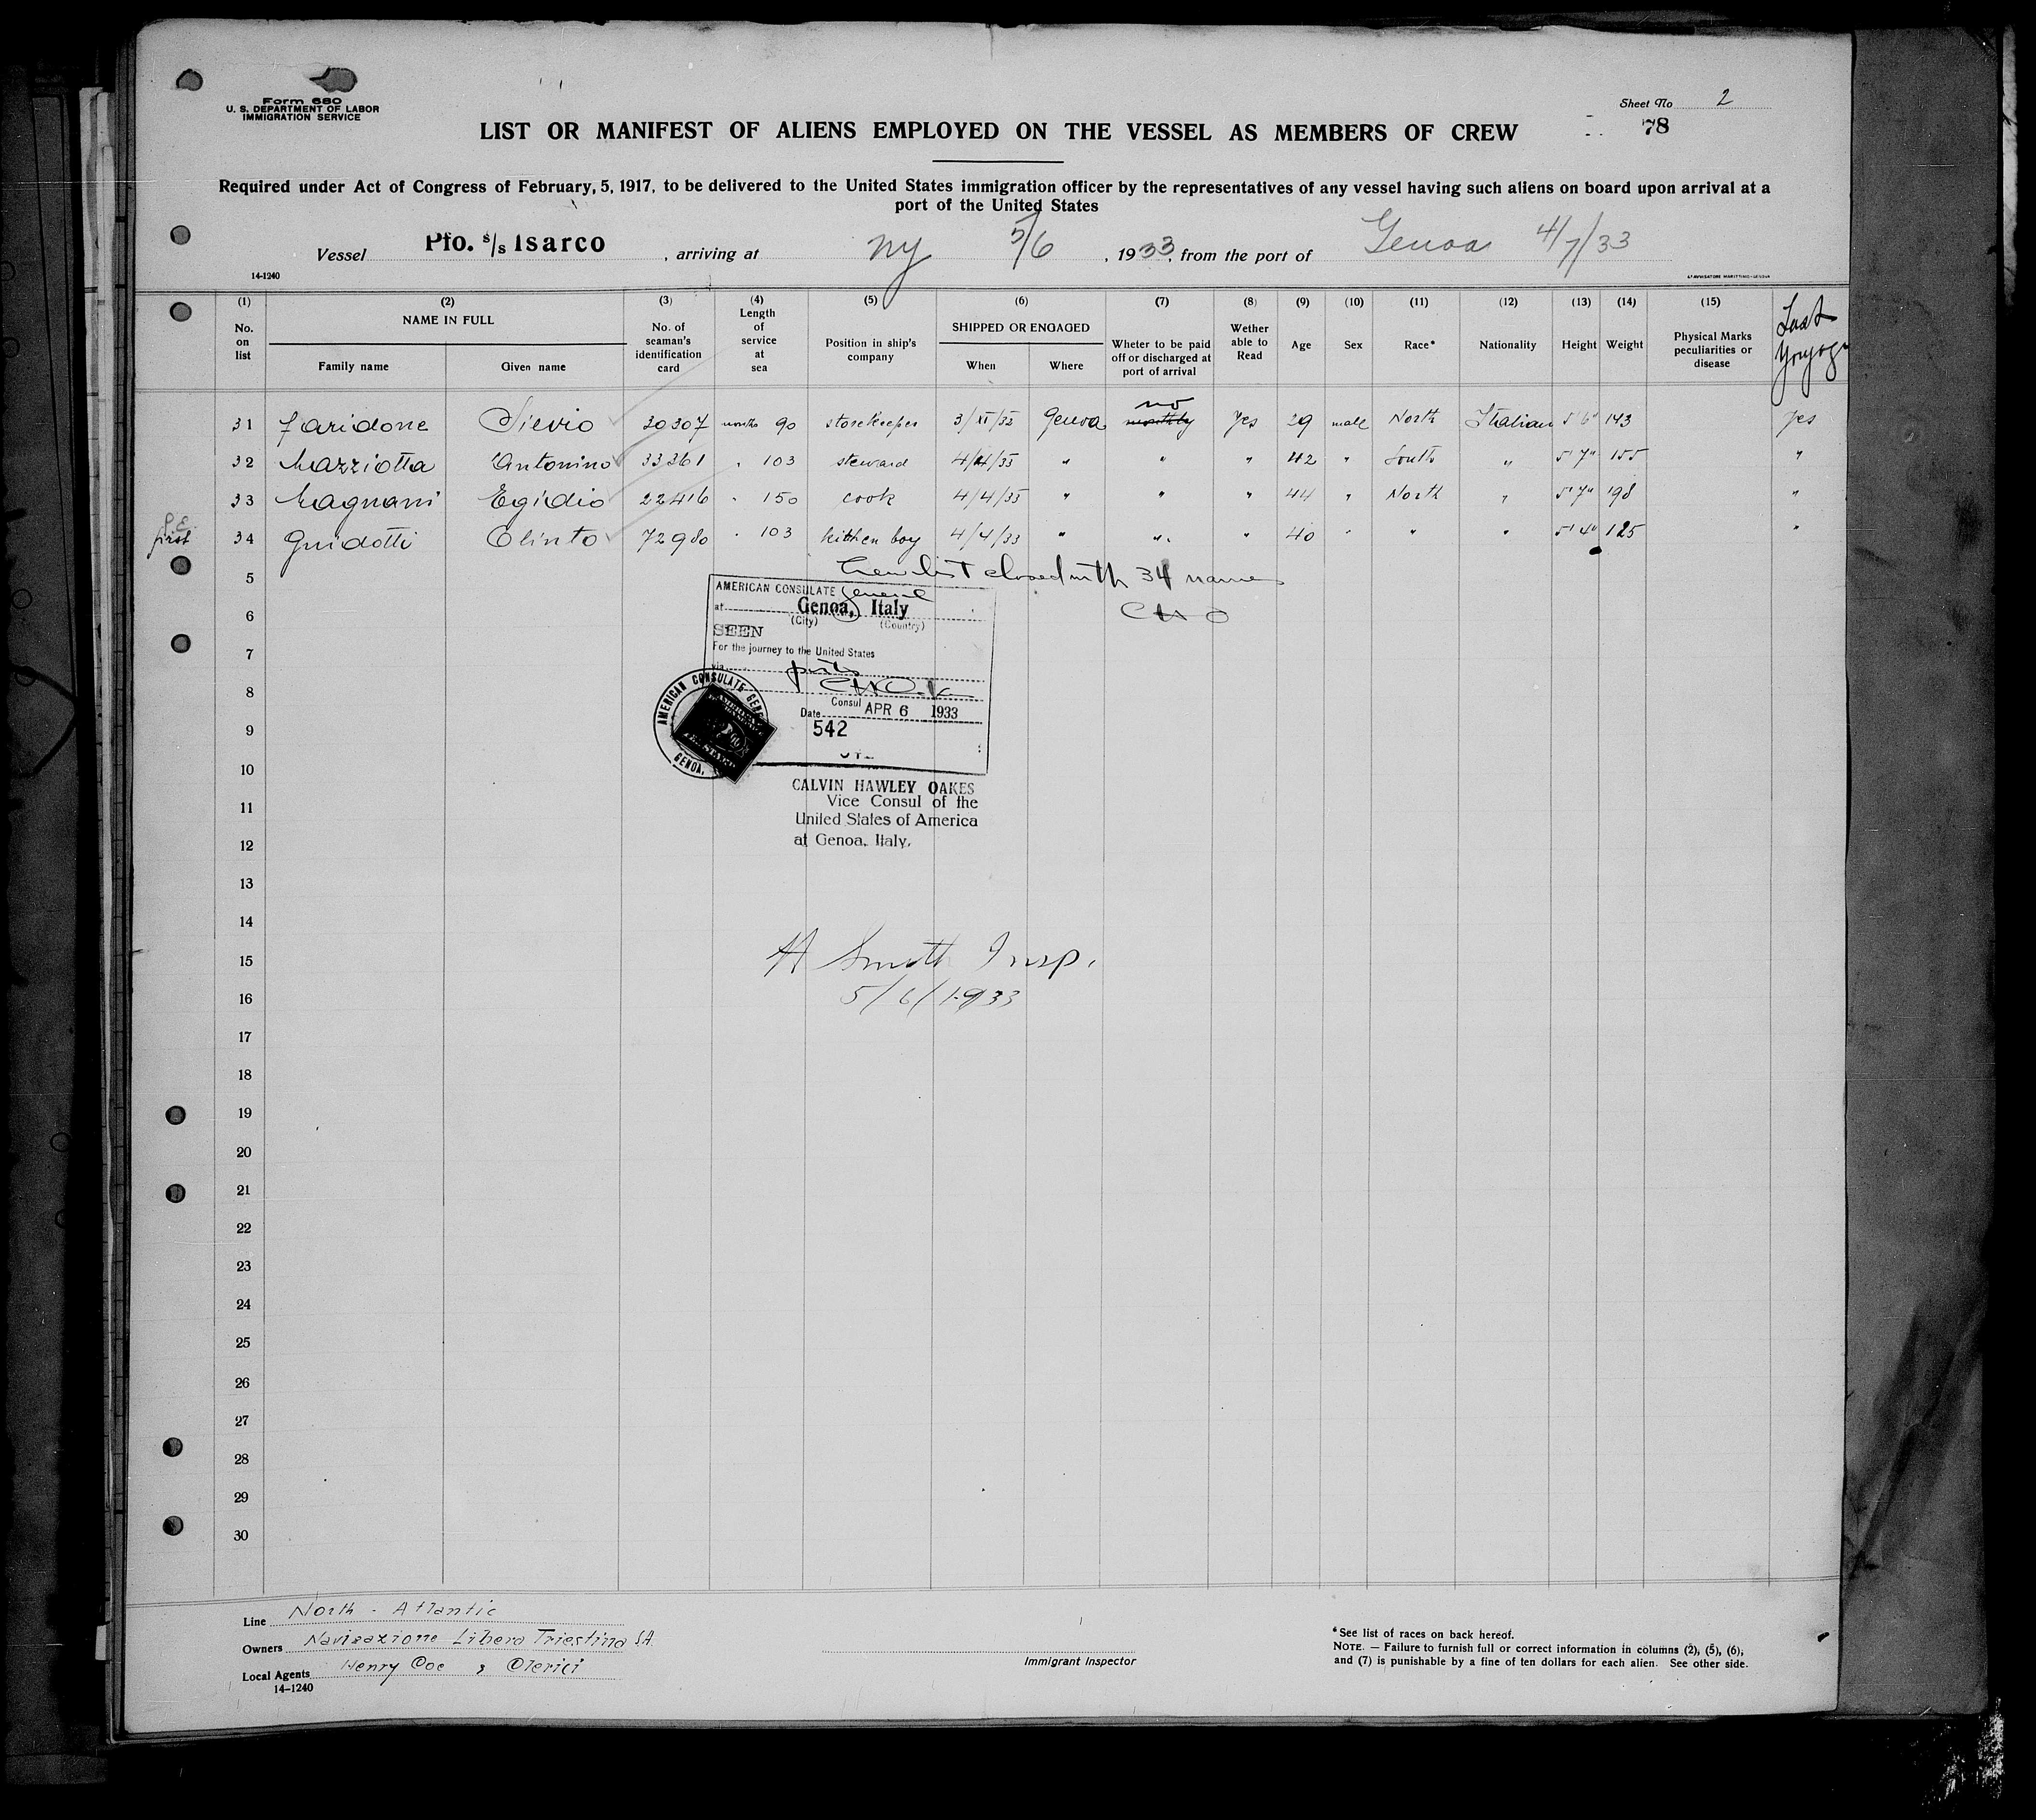 Form 680
U. S. DEPARTMENT OF LABOR
IMMIGRATION SERVICE
Sheet No 2
78
LIST OR MANIFEST OF ALIENS EMPLOYED ON THE VESSEL AS MEMBERS OF CREW
Required under Act of Congress of February, 5, 1917, to be delivered to the United States immigration officer by the representatives of any vessel having such aliens on board upon arrival at a
port of the United States
Vessel Pfo. s/s Isarco, arriving at NY 5/6, 1933, from the port of Genoa 4/7/33
14-1240
(1) (2) (3) (4) (5) (6) (7) (8) (9) (10) (11) (12) (13) (14) (15)
No. on list
NAME IN FULL
Family name Given name
No. of seaman's identification card
Length of service at sea
Position in ship's company
SHIPPED OR ENGAGED
When Where
Wheter to be paid off or discharged at port of arrival
Wether able to Read
Age Sex Race* Nationality Height Weight
Physical Marks peculiarities or disease
Last
no
31 Faridone Sievio 30307 months 90 storekeeper 3/XI/32 Genova monthly Yes 29 male North Italian 5'6" 143 yes
32 Mazziotta Antonino 33361 " 103 steward 4/4/33 " " " 42 " South " 5'7" 155 "
33 Magnani Egidio 22416 " 150 cook 4/4/33 " " " 44 " North " 5'7" 198 "
first 34 Guidotti Olinto 72980 " 103 kitchen boy 4/4/33 " " " 40 " " " 5'4" 125 "
5 Crew list closed with 34 names
6 CHO
7
8
9
10
11
12
13
14
15
16
17
18
19
20
21
22
23
24
25
26
27
28
29
30
AMERICAN CONSULATE General
at Genoa, Italy
(City) (Country)
SEEN
For the journey to the United States
via ports
Consul
Date APR 6 1933
542
AMERICAN CONSULATE GENERAL
GENOA,
CALVIN HAWLEY OAKES
Vice Consul of the
United States of America
at Genoa, Italy.
H Smith Insp.
5/6/1933
Line North - Atlantic
Owners Navigazione Libera Triestina S.A.
Local Agents Henry Coe, Clerici
14-1240
Immigrant Inspector
*See list of races on back hereof.
NOTE. — Failure to furnish full or correct information in columns (2), (5), (6),
and (7) is punishable by a fine of ten dollars for each alien. See other side.